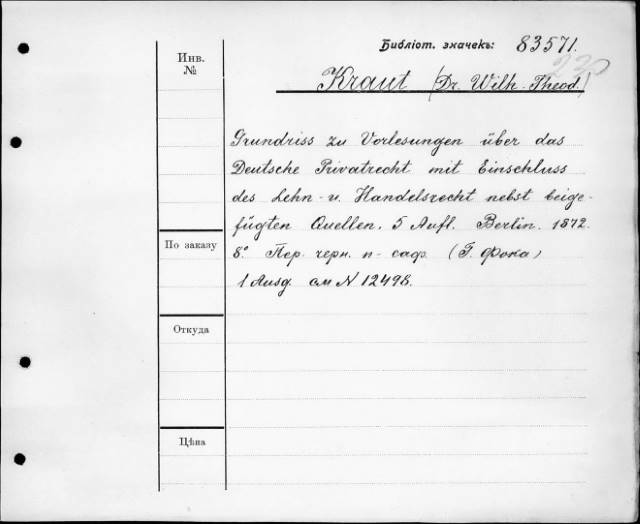 Библіот. значекъ: 83571.
Инв.
№
Kraut (Dr. Wilh. Theod.)
Grundriss zu Vorlesungen über das
Deutsche Privatrecht mit Einschluss
des Lehn- u. Handelsrecht nebst beige-
fügten Quellen. 5 Aufl. Berlin. 1872.
8° Пер. черн. п- саф. (Г. Фока)
1 Ausg. см N 12498.
По заказу
Откуда
Цѣна